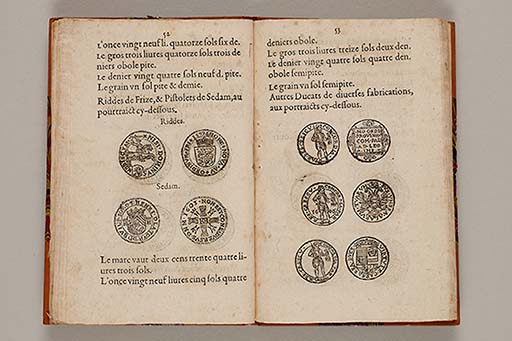 52
L'once vingt neuf li. quatorze sols six de.
Le gros trois liures quatorze sols trois de
niers obole pite.
Le denier vingt quatre sols neuf d. pite.
Le grain vn sol pite & demie.
Riddes de Frize, & Pistolets de Sedam, au
pourtraict cy-dessous.
Riddes.
Sedam.
Le marc vaut deux cens trente quatre li-
ures trois sols.
L'once vingt neuf liures cinq sols quatre
53
deniers obole.
Le gros trois liures treize sols deux den.
Le denier vingt quatre sols quatre den.
obole semipite.
Le grain vn sol semipite.
Autres Ducats de diuerses fabrications,
aux portraicts cy-dessous.
MO ORDI
PROVIN